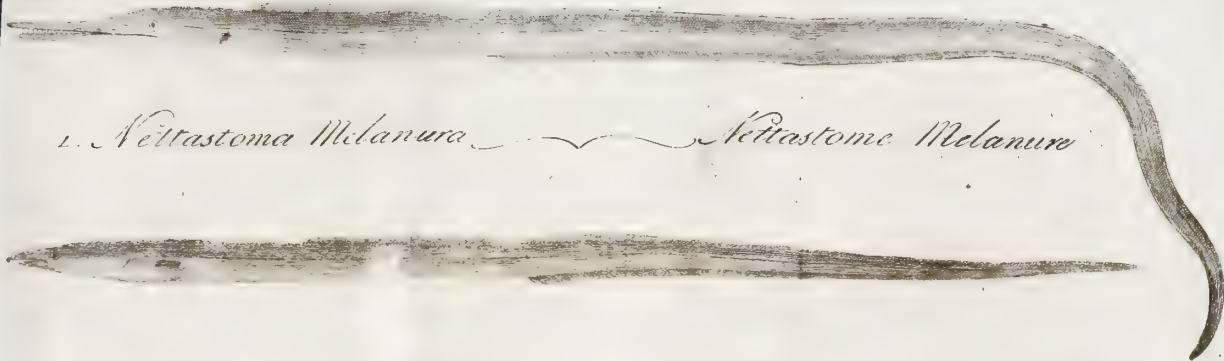 1. Nettastoma Melanura Nettastome Melanure